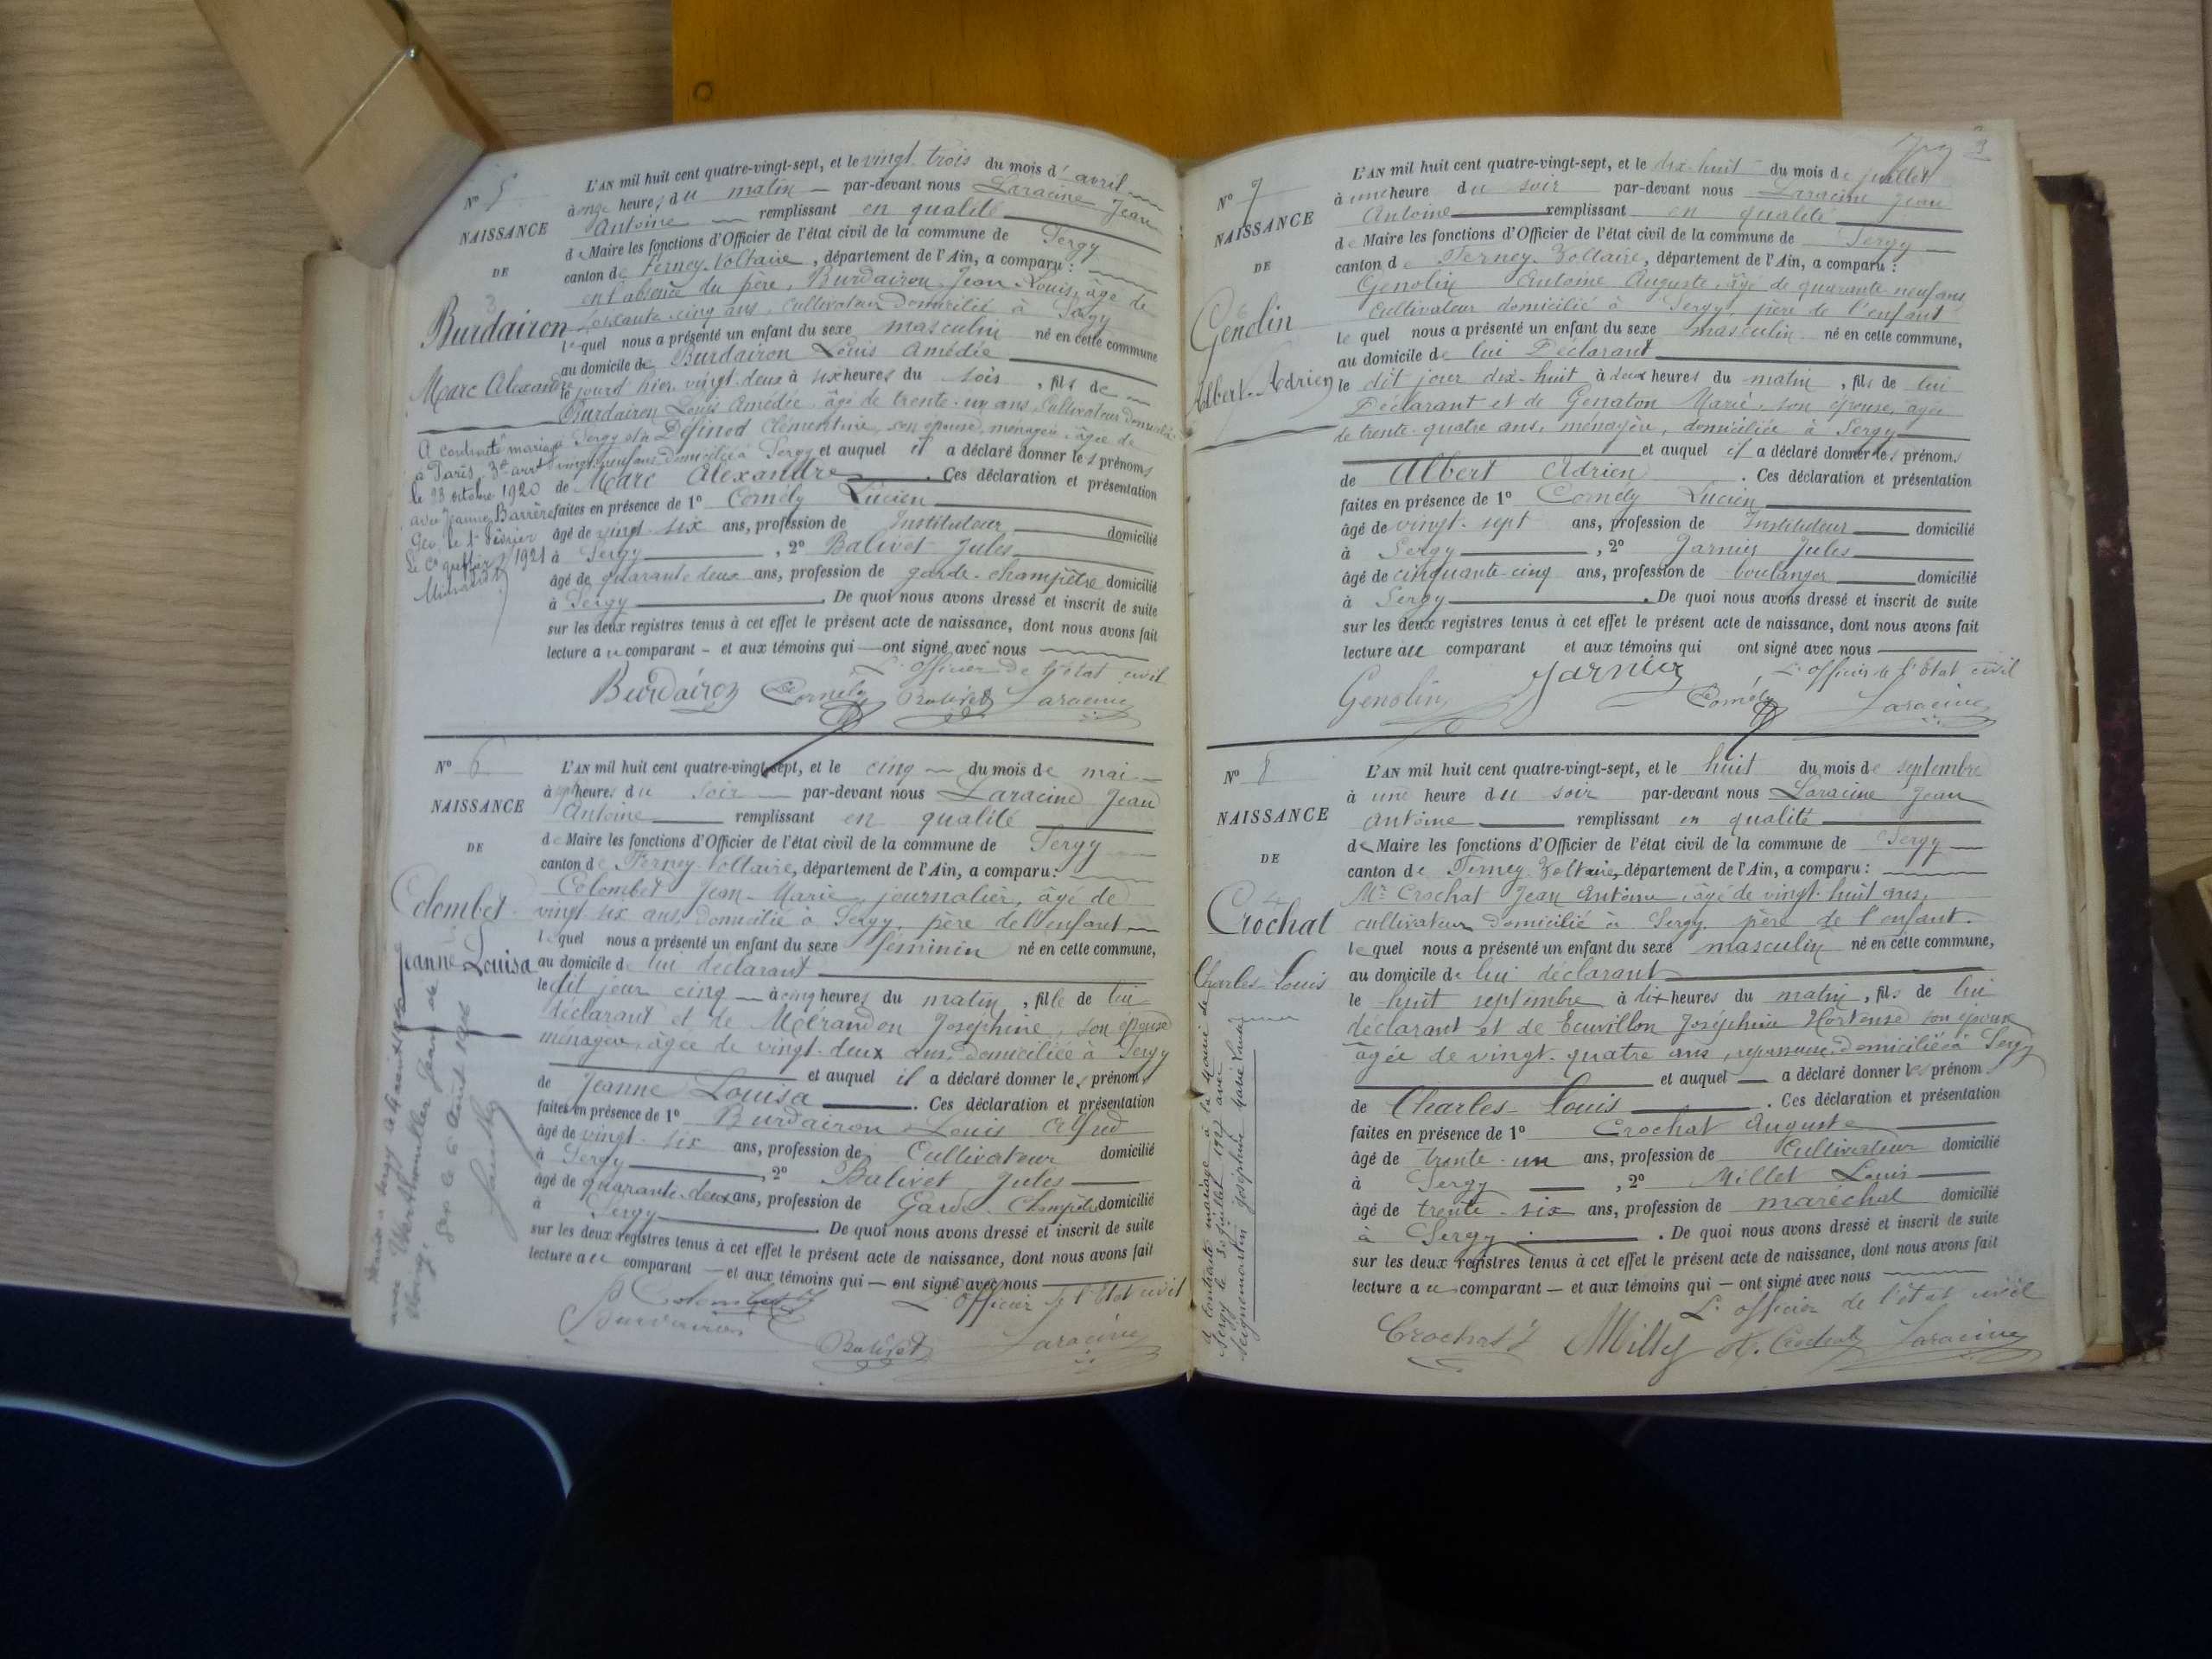 N° 5
NAISSANCE
DE
Burdairon
Marc Alexandre
A contracté mariage
à Paris 3e arrt
le 23 octobre 1920
avec Jeanne Barrère
Gex, le 1er février
1921
L'AN mil huit cent quatre-vingt-sept, et le vingt trois du mois d'avril
à onze heures du matin par-devant nous Laracine Jean
Antoine remplissant en qualité
de Maire les fonctions d'Officier de l'état civil de la commune de Sergy
canton de Ferney-Voltaire, département de l'Ain, a comparu :
en l'absence du père, Burdairon Jean Louis, âgé de
soixante cinq ans, cultivateur domicilié à Sergy
lequel nous a présenté un enfant du sexe masculin né en cette commune
au domicile de Burdairon Louis Amédée
le jourd'hier vingt-deux à six heures du soir, fils de
Burdairon Louis Amédée âgé de trente-un ans, cultivateur domicilié
à Sergy et de Clémentine, son épouse, ménagère, âgée de
domiciliée à Sergy et auquel il a déclaré donner les prénoms
de Marc Alexandre. Ces déclaration et présentation
faites en présence de 1° Comély Lucien
âgé de vingt six ans, profession de Instituteur domicilié
à Sergy, 2° Balivet Jules
âgé de quarante deux ans, profession de garde-champêtre domicilié
à Sergy. De quoi nous avons dressé et inscrit de suite
sur les deux registres tenus à cet effet le présent acte de naissance, dont nous avons fait
lecture au comparant - et aux témoins qui ont signé avec nous
L'officier de l'état civil
Burdairon Comély Balivet Laracine
N° 6
NAISSANCE
DE
Colombet
Jeanne Louisa
L'AN mil huit cent quatre-vingt-sept, et le cinq du mois de mai
à heures du soir par-devant nous Laracine Jean
Antoine remplissant en qualité
de Maire les fonctions d'Officier de l'état civil de la commune de Sergy
canton de Ferney-Voltaire, département de l'Ain, a comparu :
Colombet Jean-Marie, journalier, âgé de
vingt six ans, domicilié à Sergy, père de l'enfant
lequel nous a présenté un enfant du sexe féminin né en cette commune,
au domicile de lui déclarant
le dit jour cinq à cinq heures du matin, fille de lui
déclarant et de Joséphine, son épouse
ménagère, âgée de vingt-deux ans, domiciliée à Sergy
et auquel il a déclaré donner les prénoms
de Jeanne Louisa. Ces déclaration et présentation
faites en présence de 1° Burdairon Louis Alfred
âgé de vingt-six ans, profession de Cultivateur domicilié
à Sergy, 2° Balivet Jules
âgé de quarante-deux ans, profession de Garde-Champêtre domicilié
à Sergy. De quoi nous avons dressé et inscrit de suite
sur les deux registres tenus à cet effet le présent acte de naissance, dont nous avons fait
lecture au comparant — et aux témoins qui — ont signé avec nous
L'Officier de l'Etat civil
Colombet
Burdairon
Balivet Laracine
3
N° 7
NAISSANCE
DE
Genolin
Albert-Adrien
L'AN mil huit cent quatre-vingt-sept, et le dix-huit du mois de juillet
à une heure du soir par-devant nous Laracine Jean
Antoine remplissant en qualité
de Maire les fonctions d'Officier de l'état civil de la commune de Sergy
canton de Ferney-Voltaire, département de l'Ain, a comparu :
Genolin Antoine Auguste, âgé de quarante neuf ans,
cultivateur domicilié à Sergy, père de l'enfant
lequel nous a présenté un enfant du sexe masculin né en cette commune,
au domicile de lui Déclarant
le dit jour dix-huit à deux heures du matin, fils de lui
Déclarant et de Genaton Marie, son épouse, âgée
de trente-quatre ans, ménagère, domiciliée à Sergy
et auquel il a déclaré donner les prénoms
de Albert Adrien. Ces déclaration et présentation
faites en présence de 1° Comély Lucien
âgé de vingt-sept ans, profession de Instituteur domicilié
à Sergy, 2° Jarnier Jules
âgé de cinquante-cinq ans, profession de boulanger domicilié
à Sergy. De quoi nous avons dressé et inscrit de suite
sur les deux registres tenus à cet effet le présent acte de naissance, dont nous avons fait
lecture au comparant et aux témoins qui ont signé avec nous
L'officier de l'Etat civil
Genolin Jarnier Comély Laracine
N° 8
NAISSANCE
DE
Crochat
Charles-Louis
A contracté mariage à la mairie de
Sergy le juillet 1927 avec
Joséphine Marie
L'AN mil huit cent quatre-vingt-sept, et le huit du mois de septembre
à une heure du soir par-devant nous Laracine Jean
Antoine remplissant en qualité
de Maire les fonctions d'Officier de l'état civil de la commune de Sergy
canton de Ferney-Voltaire, département de l'Ain, a comparu :
Mr Crochat Jean Antoine, âgé de vingt-huit ans,
cultivateur domicilié à Sergy, père de l'enfant.
lequel nous a présenté un enfant du sexe masculin né en cette commune,
au domicile de lui déclarant
le huit septembre à dix heures du matin, fils de lui
déclarant et de Ecuvillon Joséphine Hortense son épouse
âgée de vingt-quatre ans, domiciliée à Sergy
et auquel a déclaré donner les prénom
de Charles-Louis. Ces déclaration et présentation
faites en présence de 1° Crochat Auguste
âgé de trente-un ans, profession de Cultivateur domicilié
à Sergy, 2° Millet Louis
âgé de trente-six ans, profession de maréchal domicilié
à Sergy. De quoi nous avons dressé et inscrit de suite
sur les deux registres tenus à cet effet le présent acte de naissance, dont nous avons fait
lecture au comparant — et aux témoins qui — ont signé avec nous
L'officier de l'état civil
Crochat Crochat Laracine